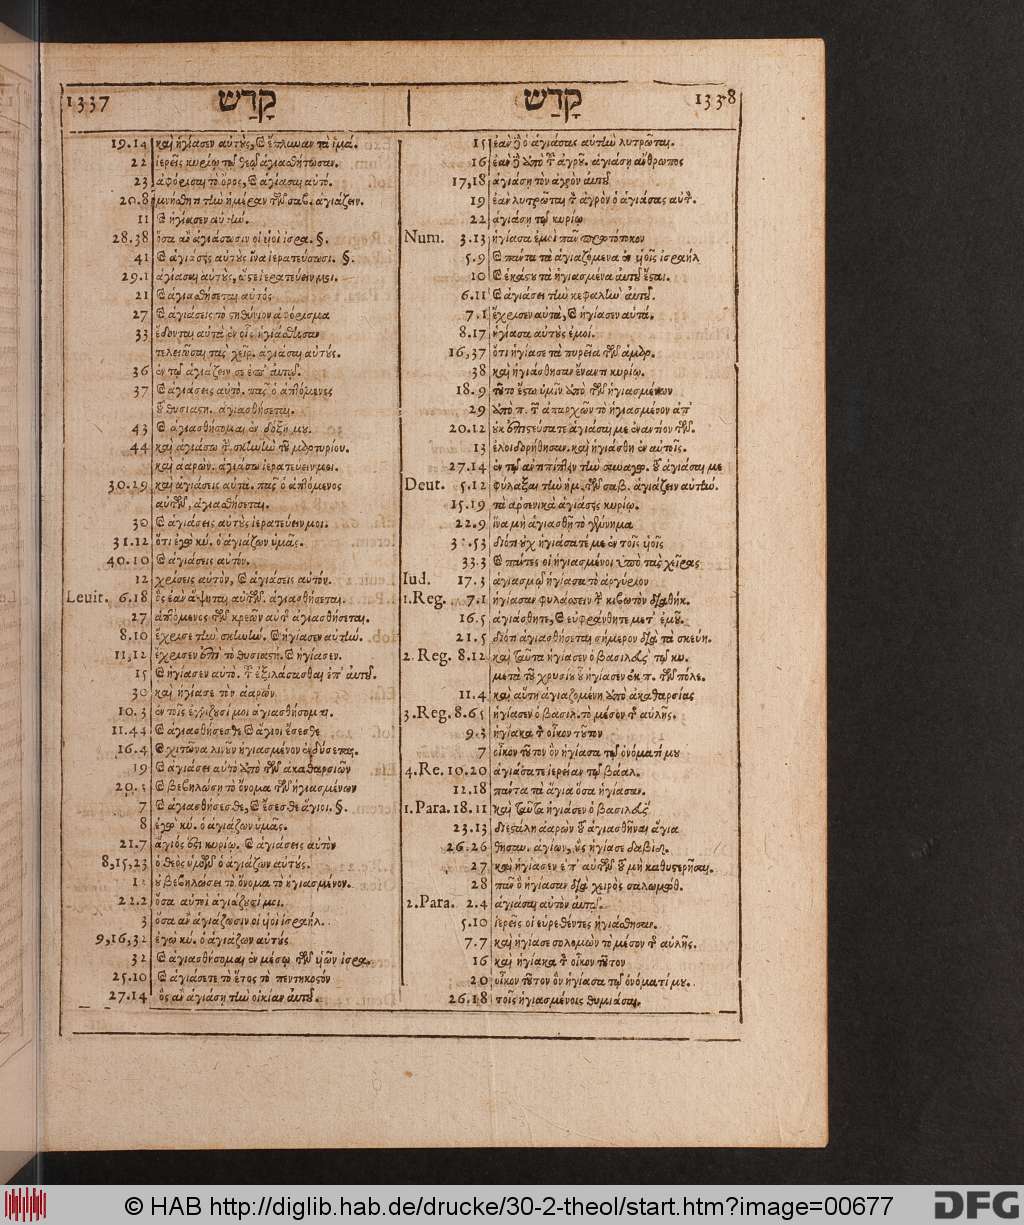 1337 קָדַשׁ
19.14 καὶ ἡγίασεν αὐτοὺς, καὶ ἔπλυναν τὰ ἱμά.
22 ἱερεῖς κυρίῳ τῷ θεῷ ἁγιασθήτωσαν.
23 ἀφόρισαι τὸ ὄρος, καὶ ἁγίασαι αὐτό.
20.8 μνήσθητι τὴν ἡμέραν τῶν σαβ. ἁγιάζειν.
11 καὶ ἡγίασεν αὐτήν.
28.38 ὅσα ἂν ἁγιάσωσιν οἱ υἱοὶ ἰσρα. §.
41 καὶ ἁγιάσεις αὐτοὺς ἵνα ἱερατεύσωσι. §.
29.1 ἁγιάσαι αὐτοὺς, ὥστε ἱερατεύειν μοι.
21 καὶ ἁγιασθήσεται αὐτός
27 καὶ ἁγιάσεις τὸ στηθύνιον ἀφόρισμα
33 ἔδονται αὐτὰ ἐν οἷς ἡγιάσθησαν
τελειῶσαι τὰς χεῖρ. ἁγιάσαι αὐτούς.
36 ἐν τῷ ἁγιάζειν σε ἐπ' αὐτῷ.
37 καὶ ἁγιάσεις αὐτό. πᾶς ὁ ἁπτόμενος
τοῦ θυσιαστη. ἁγιασθήσεται.
43 καὶ ἁγιασθήσομαι ἐν δόξῃ μου.
44 καὶ ἁγιάσω τ. σκηνὴν τοῦ μαρτυρίου.
καὶ ἀαρὼν. ἁγιάσω ἱερατεύειν μοι.
30.29 καὶ ἁγιάσεις αὐτά. πᾶς ὁ ἁπτόμενος
αὐτῶν, ἁγιασθήσεται.
30 καὶ ἁγιάσεις αὐτοὺς ἱερατεύειν μοι.
31.12 ὅτι ἐγὼ κύ. ὁ ἁγιάζων ὑμᾶς.
40.10 καὶ ἁγιάσεις αὐτόν.
12 χρίσεις αὐτὸν, καὶ ἁγιάσεις αὐτόν.
Leuit. 6.18 ὃς ἐὰν ἅψηται αὐτῶν. ἁγιασθήσεται.
27 ἁπτόμενος τῶν κρεῶν αὐτ. ἁγιασθήσεται.
8.10 ἔχρισε τὴν σκηνὴν. καὶ ἡγίασεν αὐτήν.
11,12 ἔχρισεν ἐπὶ τὸ θυσιαστή. καὶ ἡγίασεν.
15 καὶ ἡγίασεν αὐτό. τοῦ ἐξιλάσασθαι ἐπ' αὐτοῦ.
30 καὶ ἡγίασε τὸν ἀαρών
10.3 ἐν τοῖς ἐγγίζουσί μοι ἁγιασθήσομαι.
11.44 καὶ ἁγιασθήσεσθε καὶ ἅγιοι ἔσεσθε
16.4 καὶ χιτῶνα λινοῦν ἡγιασμένον ἐνδύσεται.
19 καὶ ἁγιάσει αὐτὸ ἀπὸ τῶν ἀκαθαρσιῶν
20.3 καὶ βεβηλώσῃ τὸ ὄνομα τῶν ἡγιασμένων
7 καὶ ἁγιασθήσεσθε, καὶ ἔσεσθε ἅγιοι. §.
8 ἐγὼ κύ. ὁ ἁγιάζων ὑμᾶς.
21.7 ἅγιός ἐστι κυρίῳ. καὶ ἁγιάσεις αὐτὸν
8,15,23 ὁ θεὸς ὑμῶν ὁ ἁγιάζων αὐτούς.
12 οὐ βεβηλώσει τὸ ὄνομα τὸ ἡγιασμένον.
22.2 ὅσα αὐτοὶ ἁγιάζουσί μοι.
3 ὅσα ἂν ἁγιάζωσιν οἱ υἱοὶ ἰσραήλ.
9,16,32 ἐγὼ κύ. ὁ ἁγιάζων αὐτούς
32 καὶ ἁγιασθήσομαι ἐν μέσῳ τῶν υἱῶν ἰσρα.
25.10 καὶ ἁγιάσετε τὸ ἔτος τὸ πεντηκοστόν
27.14 ὃς ἂν ἁγιάσῃ τὴν οἰκίαν αὐτοῦ.
קָדַשׁ 1338
15 ἐὰν δὲ ὁ ἁγιάσας αὐτὴν λυτρῶται.
16 ἐὰν δὲ ἀπὸ τοῦ ἀγροῦ. ἁγιάσῃ ἄνθρωπος
17,18 ἁγιάσῃ τὸν ἀγρὸν αὐτοῦ
19 ἐὰν λυτρῶται τ. ἀγρὸν ὁ ἁγιάσας αὐτ.
22 ἁγιάσῃ τῷ κυρίῳ
Num. 3.13 ἡγίασα ἐμοὶ πᾶν πρωτότοκον
5.9 καὶ πάντα τὰ ἁγιαζόμενα ἐν υἱοῖς ἰσραήλ
10 καὶ ἑκάστου τὰ ἡγιασμένα αὐτοῦ ἔσται.
6.11 καὶ ἁγιάσει τὴν κεφαλὴν αὐτοῦ.
7.1 ἔχρισεν αὐτὰ, καὶ ἡγίασεν αὐτά.
8.17 ἡγίασα αὐτοὺς ἐμοί.
16,37 ὅτι ἡγίασε τὰ πυρεῖα τῶν ἁμαρ.
38 καὶ ἡγιάσθησαν ἔναντι κυρίῳ.
18.9 τοῦτο ἔστω ὑμῖν ἀπὸ τῶν ἡγιασμένων
29 ἀπὸ π. τ. ἀπαρχῶν τὸ ἡγιασμένον ἀπ'
20.12 οὐκ ἐπιστεύσατε ἁγιάσαι με ἐναντίον τῶν.
13 ἐλοιδορήθησαν. καὶ ἡγιάσθη ἐν αὐτοῖς.
27.14 ἐν τῷ ἀντιπίπτειν τὴν συναγω. τοῦ ἁγιάσαι με
Deut. 5.12 φύλαξαι τὴν ἡμ. τῶν σαβ. ἁγιάζειν αὐτήν.
15.19 τὰ ἀρσενικὰ ἁγιάσεις κυρίῳ.
22.9 ἵνα μὴ ἁγιασθῇ τὸ γέννημα
διότι οὐχ ἡγιάσατέ με ἐν τοῖς υἱοῖς
33.3 καὶ πάντες οἱ ἡγιασμένοι ὑπὸ τὰς χεῖρας
Iud. 17.3 ἁγιασμῷ ἡγίασα τὸ ἀργύριον
1.Reg. 7.1 ἡγίασαν φυλάσσειν τ. κιβωτὸν διαθήκ.
16.5 ἁγιάσθητε, καὶ εὐφράνθητε μετ' ἐμοῦ.
21.5 διότι ἁγιασθήσεται σήμερον διὰ τὰ σκεύη.
2.Reg. 8.12 καὶ ταῦτα ἡγίασεν ὁ βασιλεὺς τῷ κυ.
μετὰ τοῦ χρυσίου οὗ ἡγίασεν ἐκ π. τῶν πόλε.
11.4 καὶ αὕτη ἁγιαζομένη ἀπὸ ἀκαθαρσίας
3.Reg. 8.65 ἡγίασεν ὁ βασιλ. τὸ μέσον τ. αὐλῆς.
9.3 ἡγίακα τ. οἶκον τοῦτον
7 οἶκον τοῦτον ὃν ἡγίασα τῷ ὀνόματί μου
4.Re. 10.20 ἁγιάσατε ἱερείαν τῷ βάαλ.
12.18 πάντα τὰ ἅγια ὅσα ἡγίασαν.
1.Para. 18.11 καὶ ταῦτα ἡγίασεν ὁ βασιλεὺς
23.13 διεστάλη ἀαρὼν τοῦ ἁγιασθῆναι ἅγια
26.26 θησαυ. ἁγίων, οὓς ἡγίασε δαβίδ.
27 καὶ ἡγίασεν ἐπ' αὐτῶν τοῦ μὴ καθυστερῆσαι.
28 πᾶν ὃ ἡγίασαν διὰ χειρὸς σαλωμώθ.
2.Para. 2.4 ἁγιάσαι αὐτὸν αὐτῷ.
5.10 ἱερεῖς οἱ εὑρεθέντες ἡγιάσθησαν.
7.7 καὶ ἡγίασε σολομὼν τὸ μέσον τ. αὐλῆς.
16 καὶ ἡγίακα τ. οἶκον τοῦτον
20 οἶκον τοῦτον ὃν ἡγίασα τῷ ὀνόματί μου.
26.18 τοῖς ἡγιασμένοις θυμιάσαι.
© HAB http://diglib.hab.de/drucke/30-2-theol/start.htm?image=00677 DFG